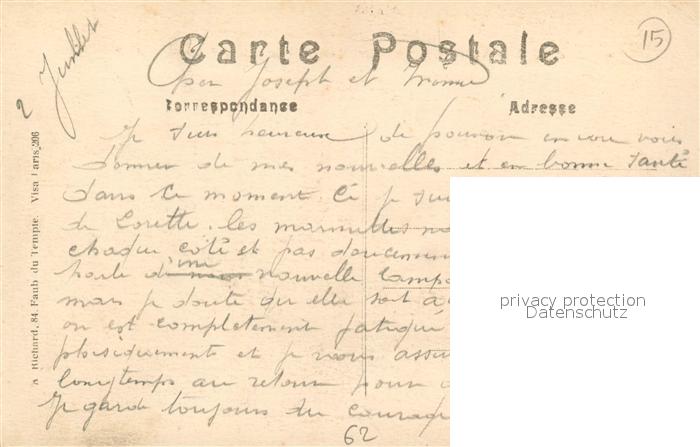 15
2 Juillet
Carte Postale
par Joseph et Yvonne
Correspondance
Adresse
Je suis heureux de pouvoir encore vous
donner de mes nouvelles et en bonne santé
dans ce moment. Ci je sui
de Lorette. les marmites
chaque côté et pas doucement
d'une nouvelle
mais je doute qu elle soit à
on est completement fatigué
phisiquement et je vous assu
longtemps au retour pour
Je garde toujours du courage
62
A Richard, 84. Faub du Temple. Visa Paris 206
privacy protection
Datenschutz